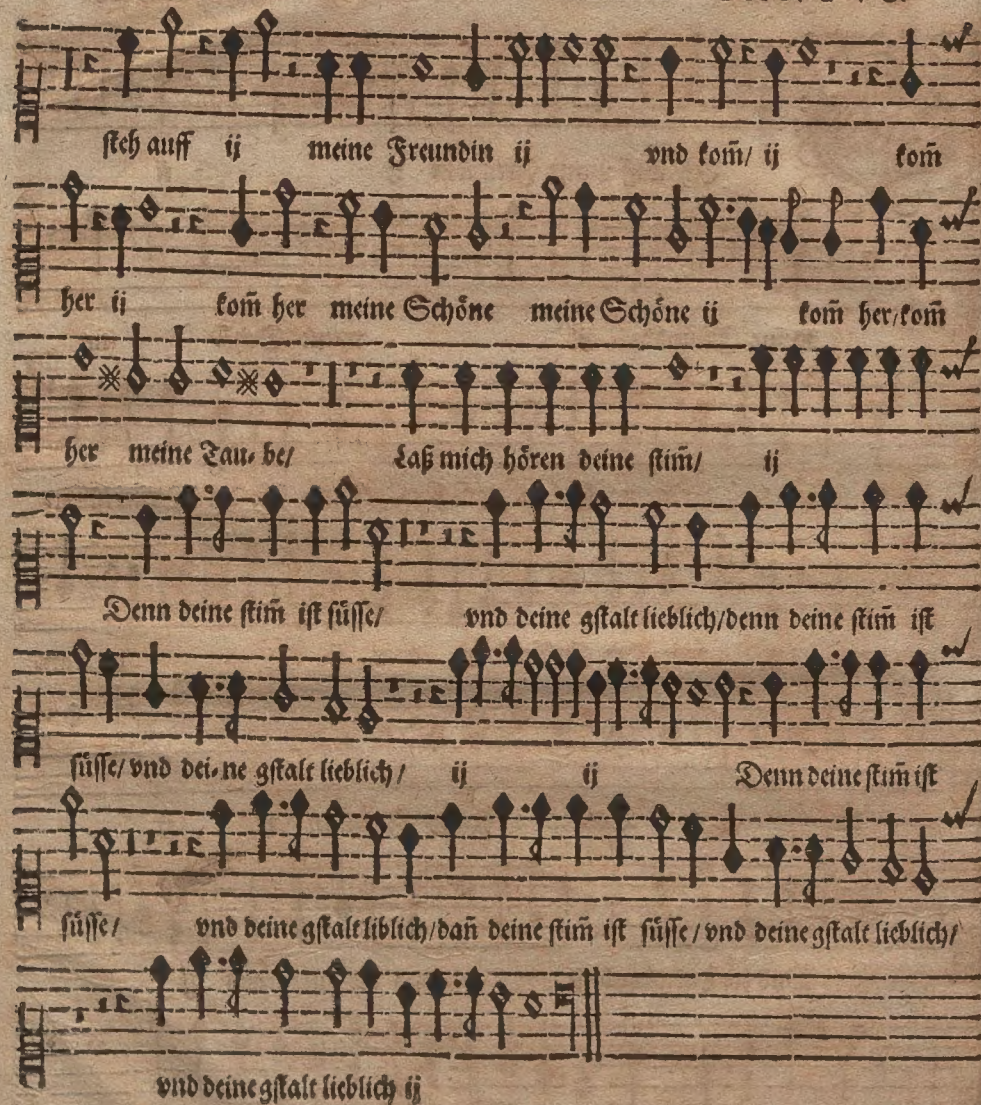 steh auff ij meine Freundin ij vnd kom̃/ ij kom̃
her ij kom̃ her meine Schöne meine Schöne ij kom̃ her/kom̃
her meine Tau- be/ Laß mich hören deine stim̃/ ij
Denn deine stim̃ ist süsse/ vnd deine gstalt lieblich/denn deine stim̃ ist
süsse/ vnd dei-ne gstalt lieblich/ ij ij Denn deine stim̃ ist
süsse/ vnd deine gstalt liblich/dañ deine stim̃ ist süsse/vnd deine gstalt lieblich/
vnd deine gstalt lieblich ij